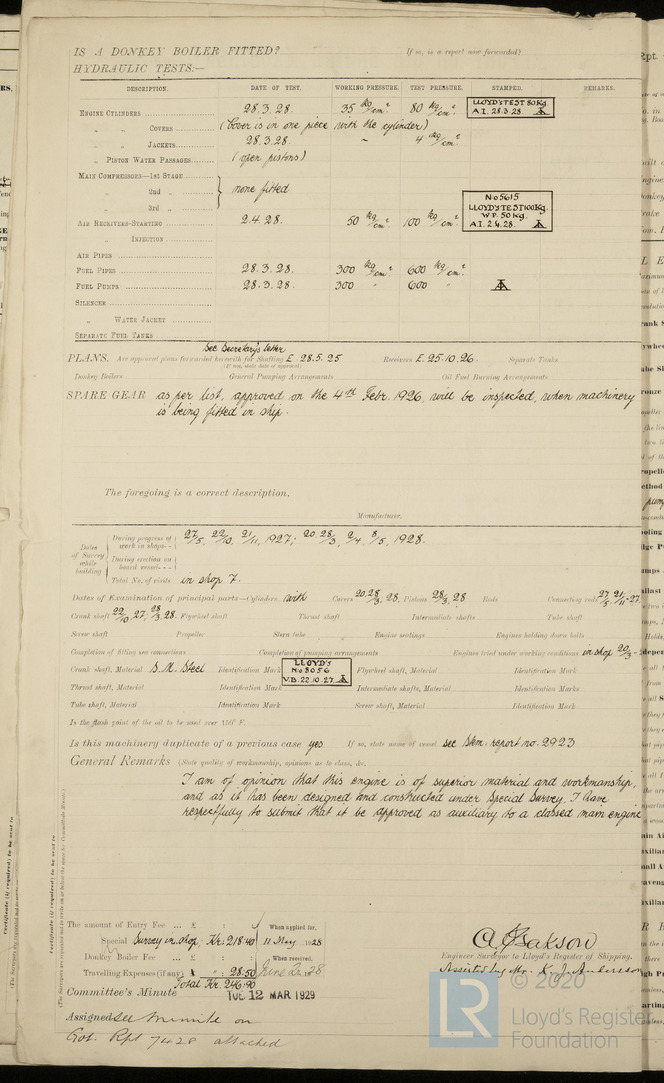 IS A DONKEY BOILER FITTED? If so, is a report now forwarded?
HYDRAULIC TESTS:—
DESCRIPTION. DATE OF TEST. WORKING PRESSURE. TEST PRESSURE. STAMPED. REMARKS.
ENGINE CYLINDERS 28.3.28 35 kg/cm² 80 kg/cm² LLOYD'S TEST 80 Kg. A.I. 28.3.28
" " COVERS (Cover is in one piece with the cylinder)
" " JACKETS 28.3.28. – 4 kg/cm²
" PISTON WATER PASSAGES (open pistons)
MAIN COMPRESSORS—1st STAGE
" 2nd " none fitted
" 3rd "
AIR RECEIVERS—STARTING 2.4.28. 50 kg/cm² 100 kg/cm² No 5615 LLOYD'S TEST 100 Kg. W.P. 50 Kg. A.I. 2.4.28.
" INJECTION
AIR PIPES
FUEL PIPES 28.3.28. 300 kg/cm² 600 kg/cm²
FUEL PUMPS 28.3.28. 300 " 600 "
SILENCER
" WATER JACKET
SEPARATE FUEL TANKS
See Secretary's letter
PLANS. Are approved plans forwarded herewith for Shafting E. 28.5.25 Receivers E. 25.10.26. Separate Tanks
(If not, state date of approval)
Donkey Boilers General Pumping Arrangements Oil Fuel Burning Arrangements
SPARE GEAR as per list, approved on the 4th Febr. 1926, will be inspected, when machinery
is being fitted in ship.
The foregoing is a correct description,
Manufacturer.
Dates of Survey while building
During progress of work in shops-- 27/5, 22/10, 21/11, 1927; 20, 28/3, 2/4, 8/5, 1928.
During erection on board vessel---
Total No. of visits in shop 7.
Dates of Examination of principal parts—Cylinders with Covers 20,28/3 28. Pistons 28/3 28 Rods Connecting rods 27/5 21/11-27.
Crank shaft 22/10 27, 28/3 28. Flywheel shaft Thrust shaft Intermediate shafts Tube shaft
Screw shaft Propeller Stern tube Engine seatings Engines holding down bolts
Completion of fitting sea connections Completion of pumping arrangements Engines tried under working conditions in shop 20/3-
Crank shaft, Material S.M. Steel Identification Mark LLOYD'S No 8056 V.B. 22.10.27. Flywheel shaft, Material Identification Mark
Thrust shaft, Material Identification Mark Intermediate shafts, Material Identification Marks
Tube shaft, Material Identification Mark Screw shaft, Material Identification Mark
Is the flash point of the oil to be used over 150° F.
Is this machinery duplicate of a previous case yes If so, state name of vessel see Skm. report no. 2923
General Remarks (State quality of workmanship, opinions as to class, &c.
I am of opinion that this engine is of superior material and workmanship,
and as it has been designed and constructed under Special Survey, I have
respectfully to submit that it be approved as auxiliary to a classed main engine
Certificate (if required) to be sent to
The amount of Entry Fee .. £ : : When applied for,
Special Survey in shop, Kr: 218.40 11 May 1928
Donkey Boiler Fee ... £ : : When received,
Travelling Expenses (if any) " : 28.50
Total Kr. 246.90
Engineer Surveyor to Lloyd's Register of Shipping.
Assisted by Mr. K. J. Anderson
Committee's Minute TUE 12 MAR 1929
Assigned see minute on
Got. Rpt 7428 attached
LR © 2020
Lloyd's Register
Foundation